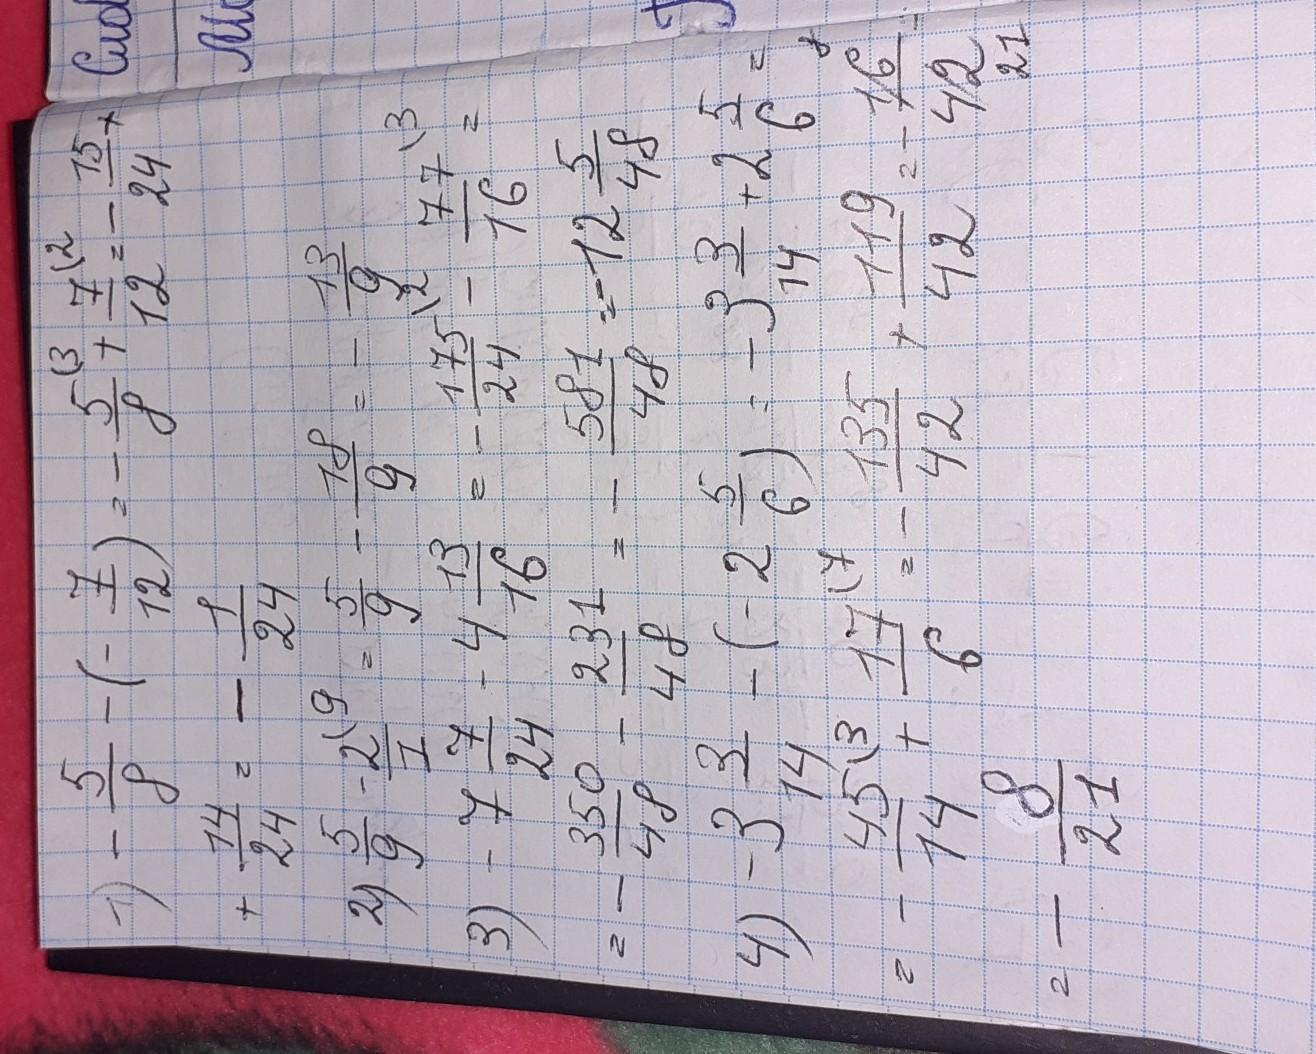 1) - 5/8 - (- 7/12) = - 5/8 \3 + 7/12 \2 = - 15/24 +
+ 14/24 = - 1/24
2) 5/9 - 2/1 \9 = 5/9 - 18/9 = - 13/9
3) - 7 7/24 - 4 13/16 = - 175/24 \2 - 77/16 \3 =
= - 350/48 - 231/48 = - 581/48 = - 12 5/48
4) - 3 3/14 - (- 2 5/6) = - 3 3/14 + 2 5/6 =
= - 45/14 \3 + 17/6 \7 = - 135/42 + 119/42 = - 16/42 8 21 =
= - 8/21